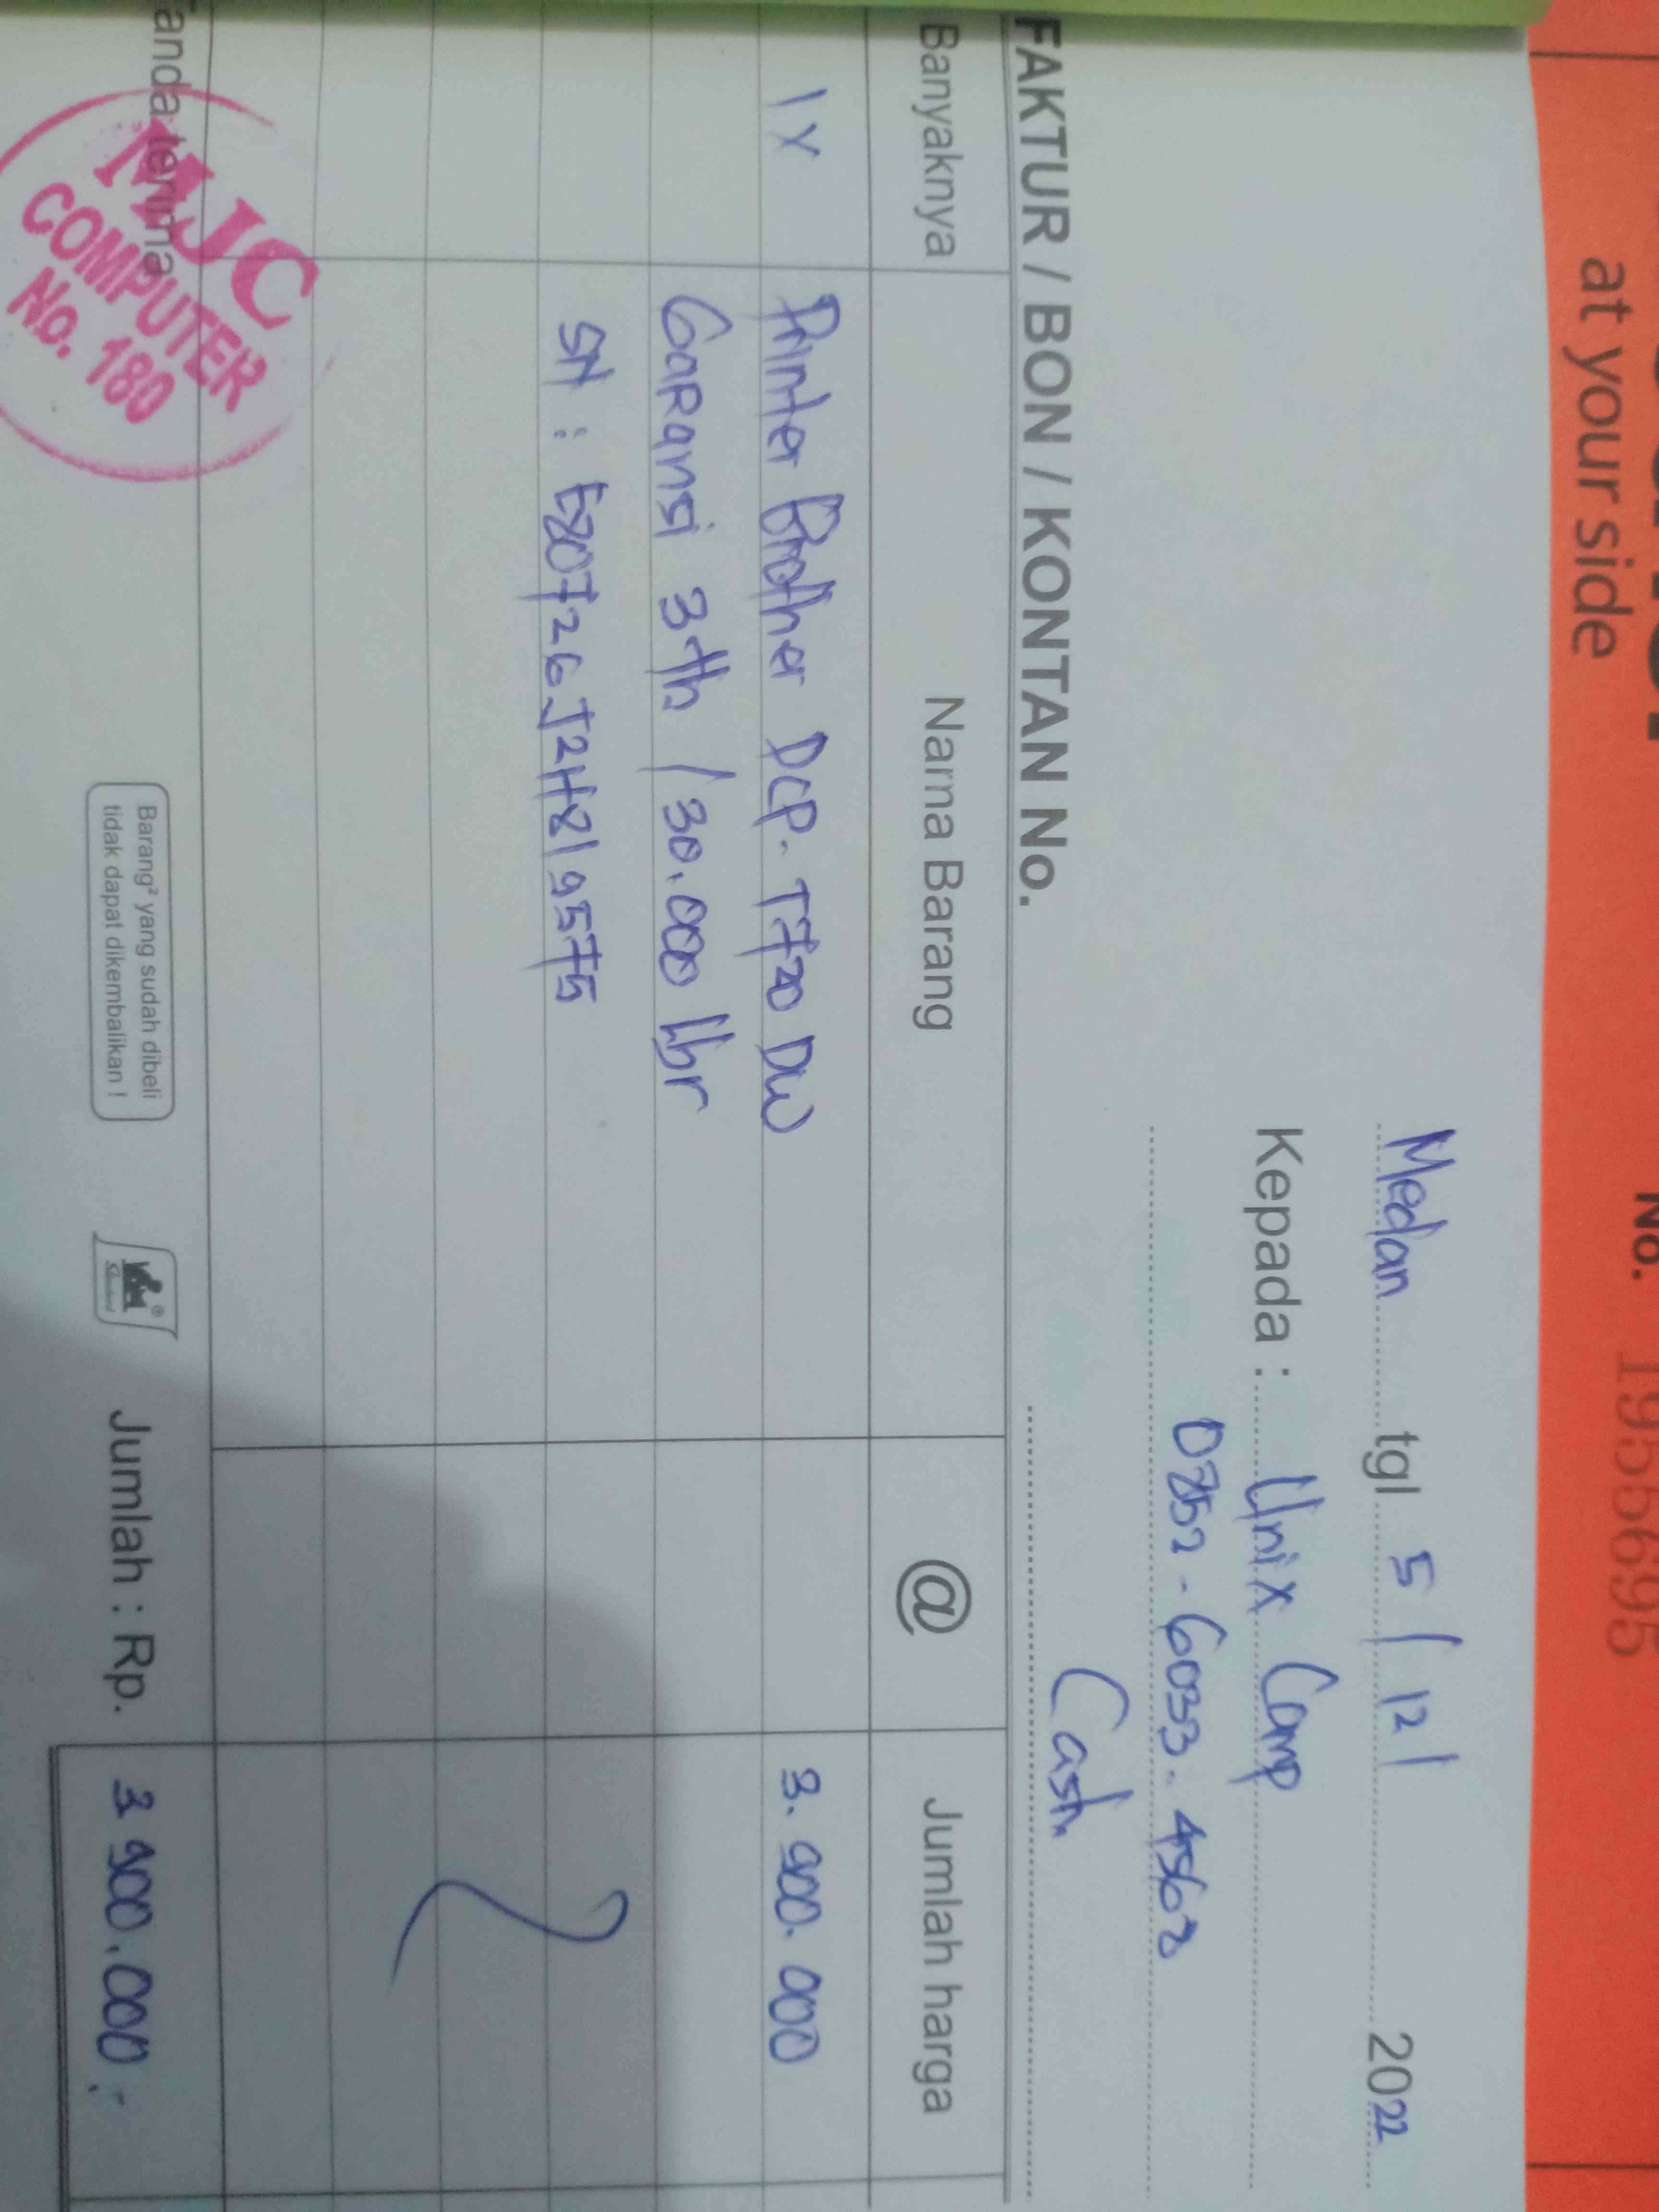 at your side
No. 1955695
Medan tgl 5 / 12 / 2022
Kepada : Unix Comp
0852-6033-4562
Cash
FAKTUR / BON / KONTAN No.
Banyaknya Nama Barang @ Jumlah harga
1 x Printer Brother DCP. T720 DW 3.900.000
GaRansi 3th / 30.000 lbr
SN : E80726J2H819575
Tanda terima
MJC
COMPUTER
No. 180
Barang² yang sudah dibeli
tidak dapat dikembalikan !
Jumlah : Rp. 3 900.000,-